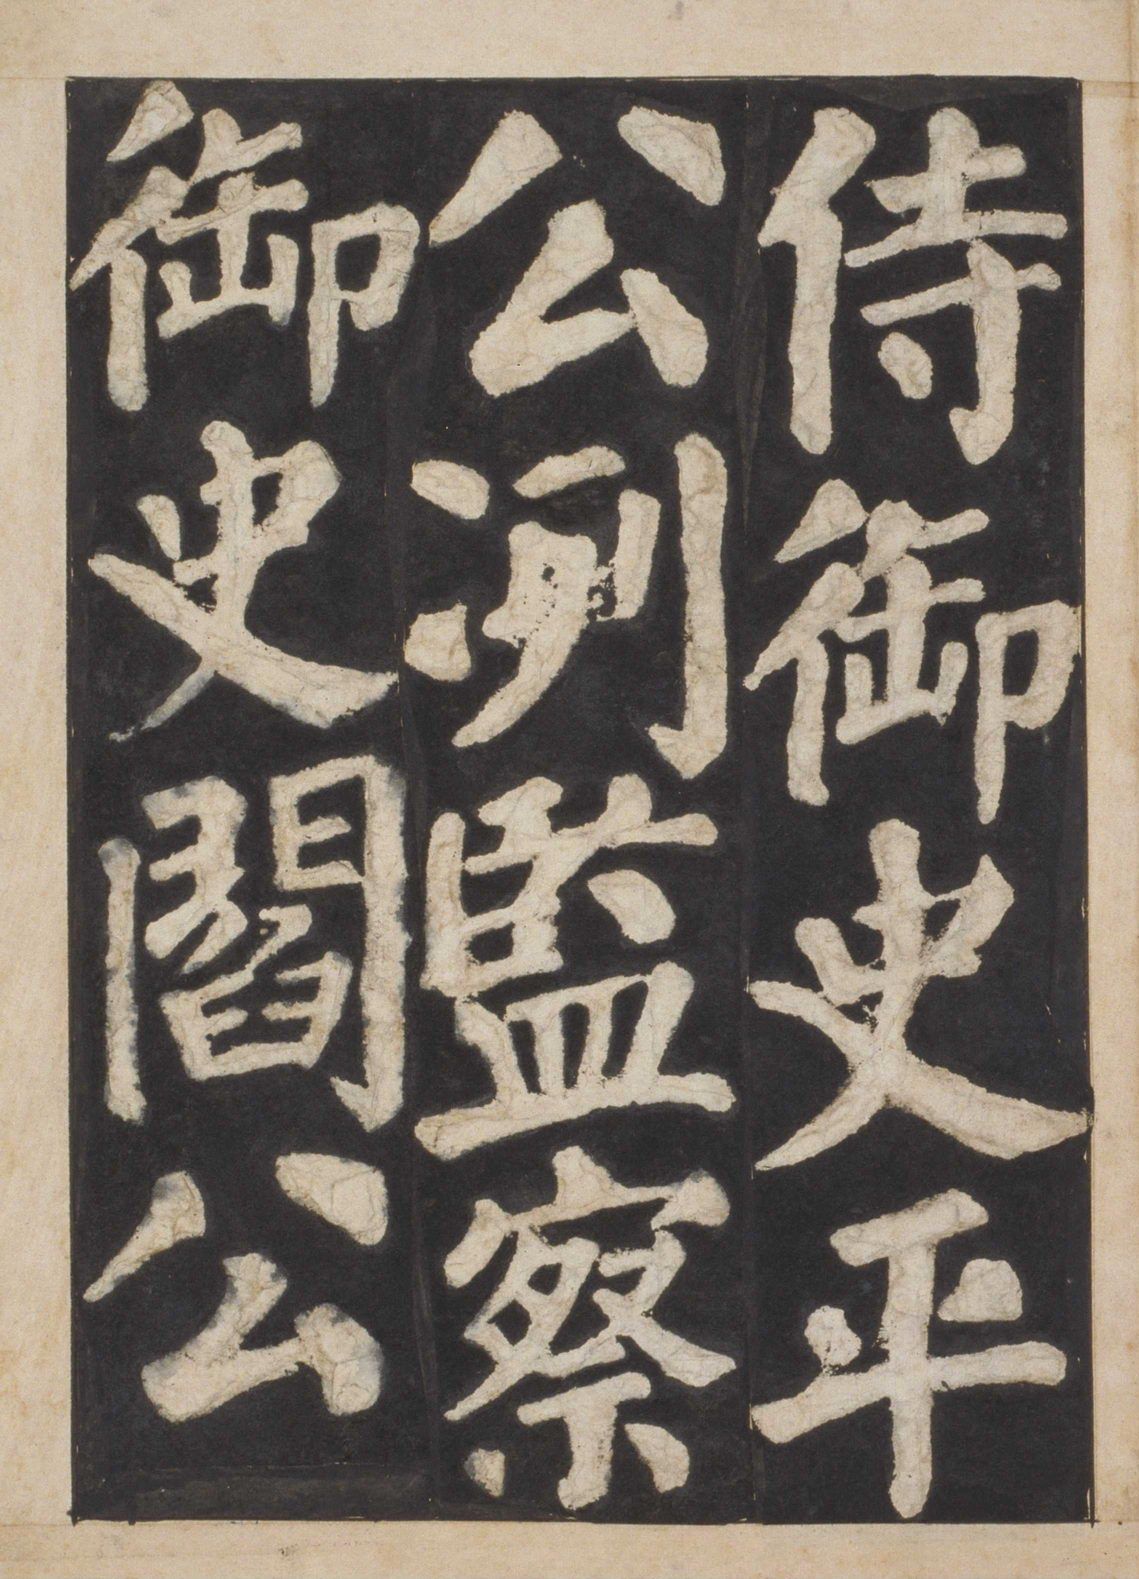 侍御史平
公洌監察
御史閻公